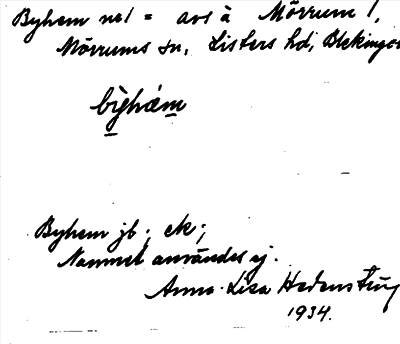 Byhem nr 1 = avs å Mörrum 1,
Mörrums sn, Listers hd, Blekinge
bỳhém
Byhem jb; ek;
Namnet användes ej.
Anna-Lisa
1934.